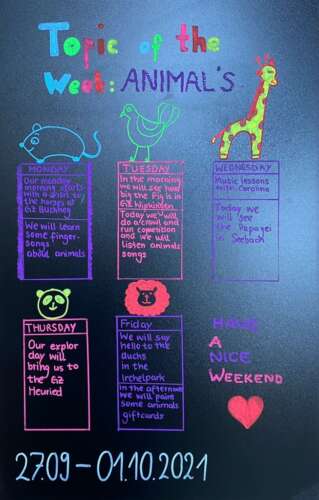 Topic of the
Week: ANIMAL'S
MONDAY
Our monday
morning starts
with a visit by
the horses at
Giz Buchney
We will learn
some finger-
songs
about animals
TUESDAY
In the morning
we will see how
big the Pig is in
Giz Wipkingen
Today we will
do a crawl and
run competition
and we will
listen animals
songs
WEDNESDAY
Music lessons
with Carolina
Today we
will see
the Papagei
in Seebach
THURSDAY
Our explor
day will
bring us to
the Giz
Heuried
Friday
We will say
hello to the
duchs
in the
Irchelpark
In the afternoon
we will paint
some animals
giftcards
HAVE
A
NICE
WEEKEND
27.09 – 01.10.2021